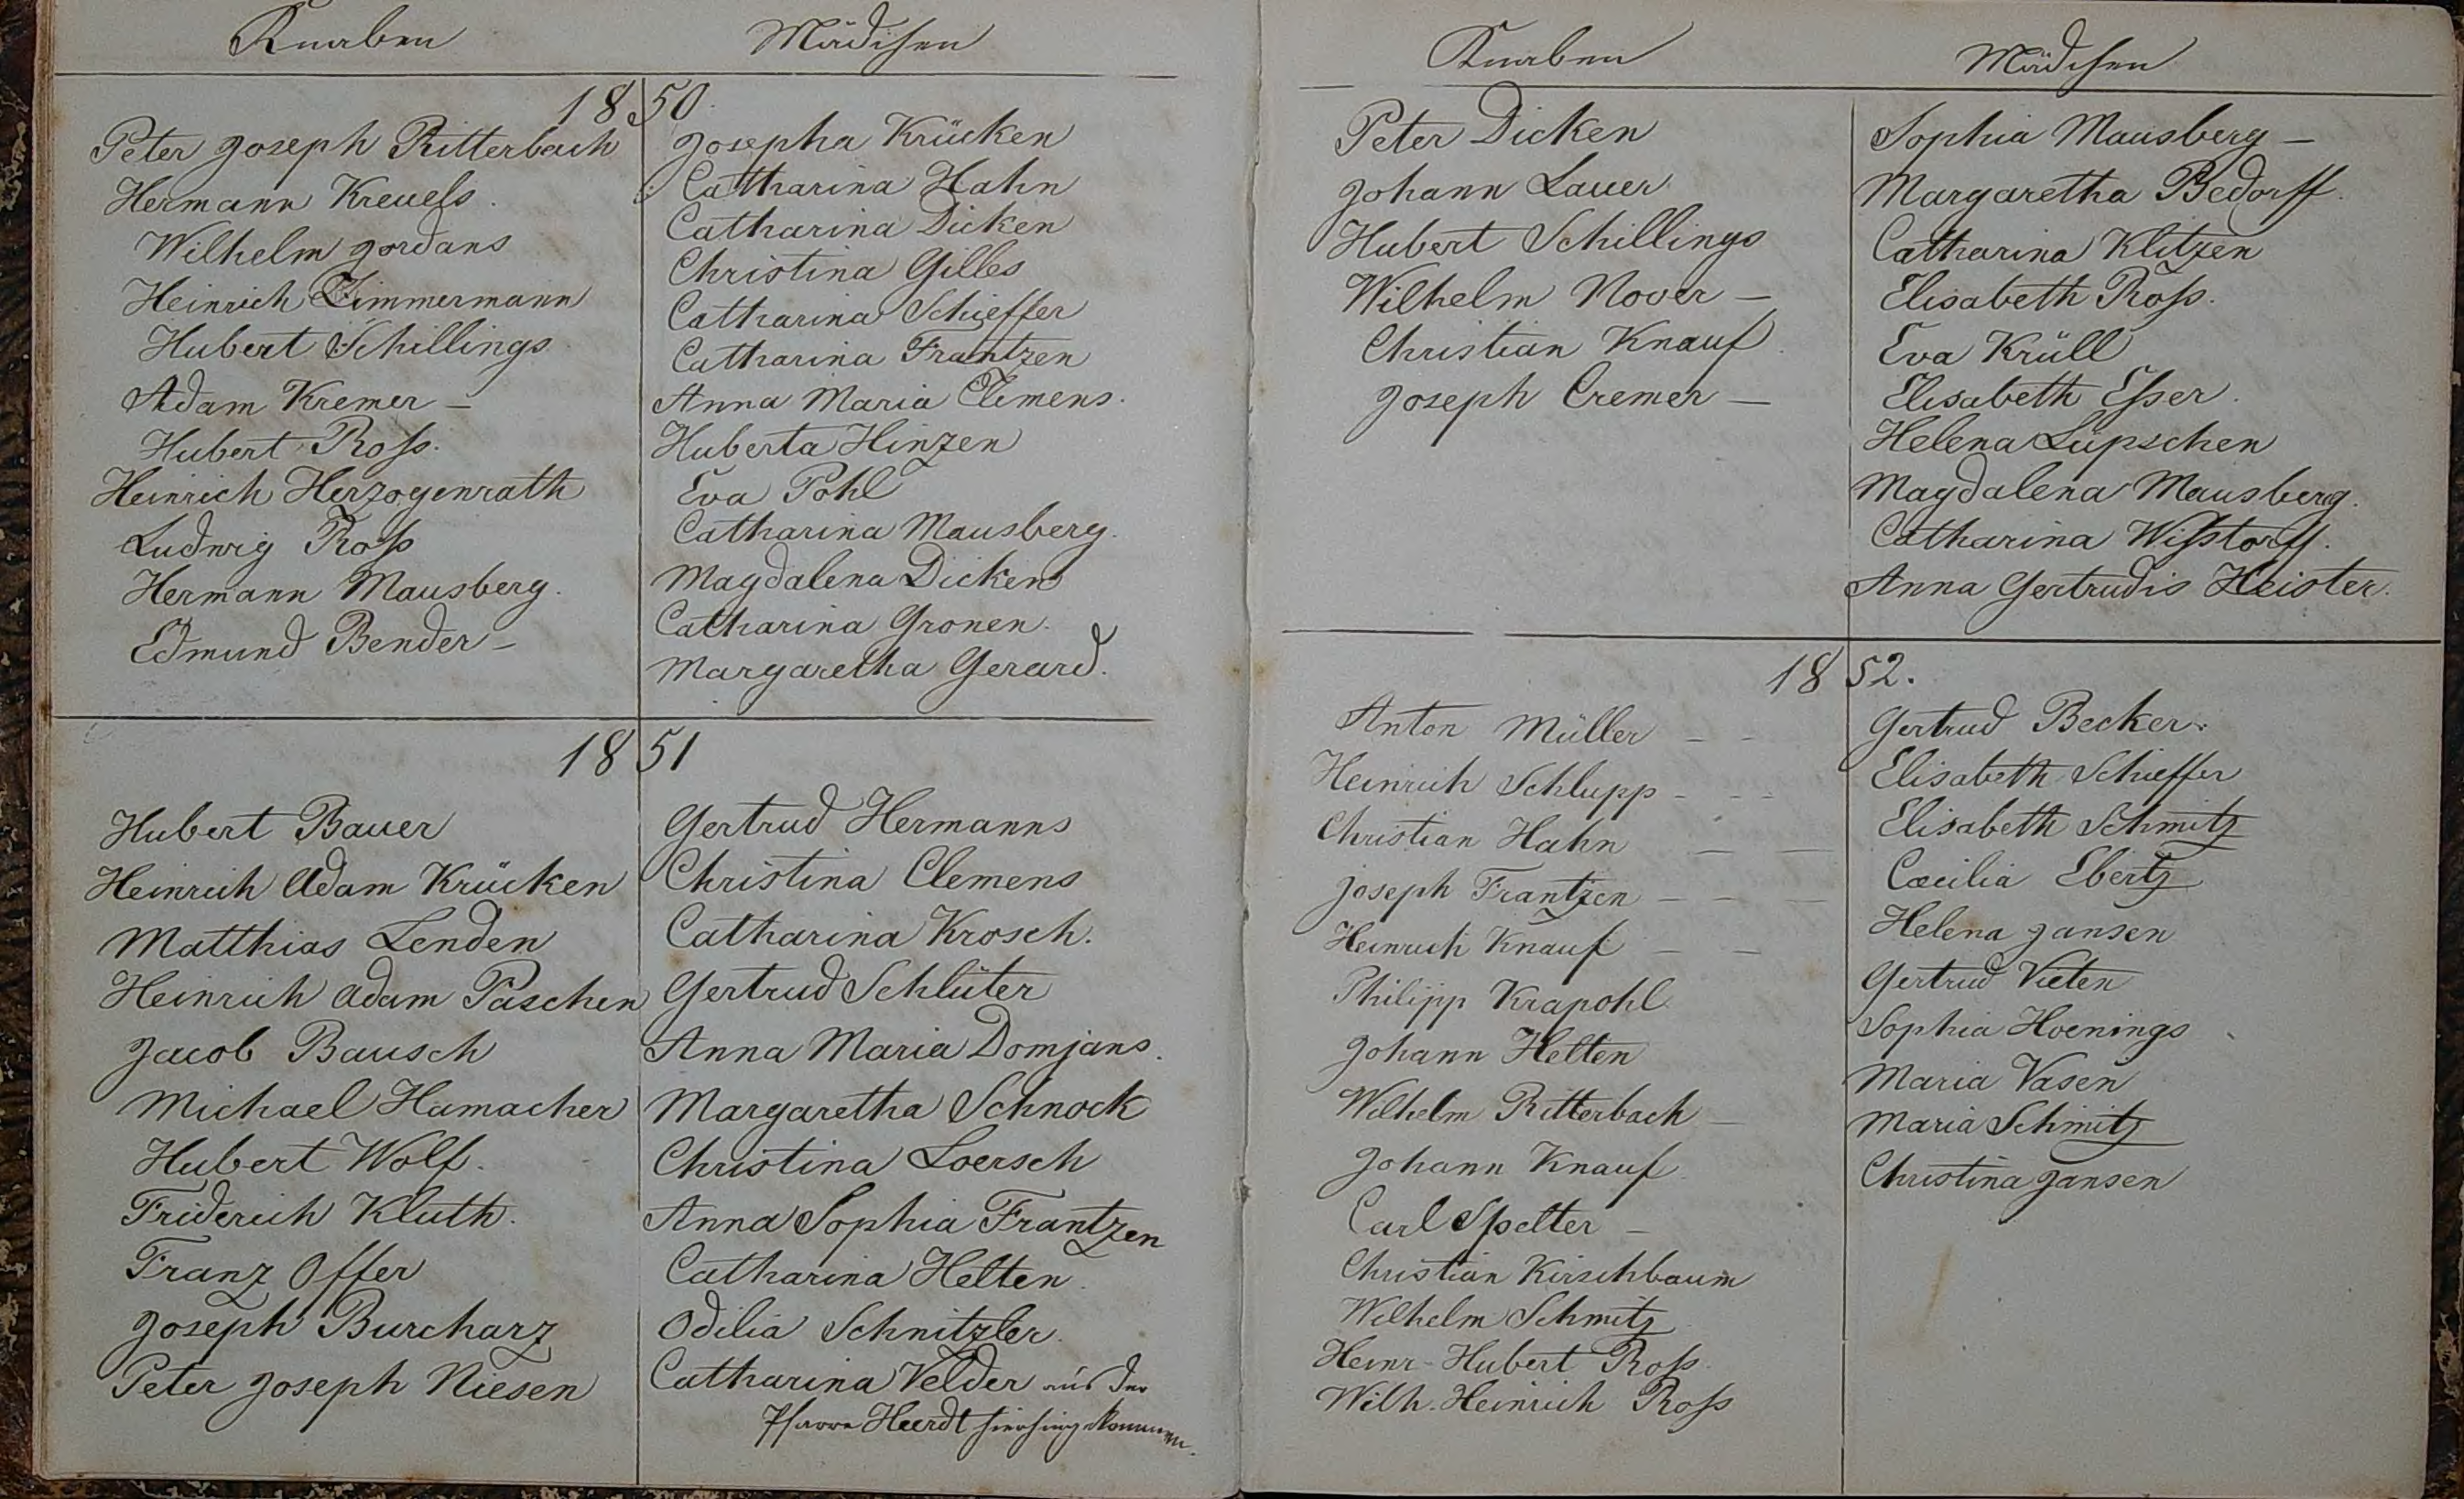 Knaben
Mädchen
1850.
Peter Joseph Ritterbach
Hermann Kreuels.
Wilhelm Jordans
Heinrich Zimmermann
Hubert Schillings
Adam Kremer –
Hubert Roß.
Heinrich Herzogenrath
Ludwig Roß
Hermann Mausberg.
Edmund Bender –
Josepha Krücken
Catharina Hahn
Catharina Dicken
Christina Gilles
Catharina Schieffer
Catharina Frantzen
Anna Maria Clemens.
Huberta Hinzen
Eva Pohl
Catharina Mausberg.
Magdalena Dicken
Catharina Gronen.
Margaretha Gerard.
1851
Hubert Bauer
Heinrich Adam Krücken
Matthias Lenden
Heinrich Adam Paschen
Jacob Bausch
Michael Hamacher
Hubert Wolf.
Friderich Kluth.
Franz Offer
Joseph Burcharz
Peter Joseph Niesen
Gertrud Hermanns
Christina Clemens
Catharina Krosch.
Gertrud Schlüter
Anna Maria Domjans.
Margaretha Schnock
Christina Loersch
Anna Sophia Frantzen
Catharina Helten.
Odilia Schnitzler.
Catharina Velder aus der
Pfarre Heerdt hierhingekommen.
Knaben
Mädchen
Peter Dicken
Johann Lauer
Hubert Schillings
Wilhelm Nover –
Christian Knauf
Joseph Cremer –
Sophia Mausberg –
Margaretha Bedorff.
Catharina Klitzen
Elisabeth Roß.
Eva Krüll
Elisabeth Eßer.
Helena Lüpschen
Magdalena Mausberg.
Catharina Wißtorff.
Anna Gertrudis Heister.
1852.
Anton Müller – –
Heinrich Schlupp – – –
Christian Hahn – –
Joseph Frantzen – – –
Heinrich Knauf – –
Philipp Krapohl
Johann Helten
Wilhelm Ritterbach –
Johann Knauf
Carl Spelter –
Christian Kirschbaum
Wilhelm Schmitz
Heinr-Hubert Roß.
Wilh. Heinrich Roß
Gertrud Becker.
Elisabeth Schieffer
Elisabeth Schmitz
Cæcilia Ebertz
Helena Jansen
Gertrud Vieten
Sophia Hoenings
Maria Vasen
Maria Schmitz
Christina Jansen